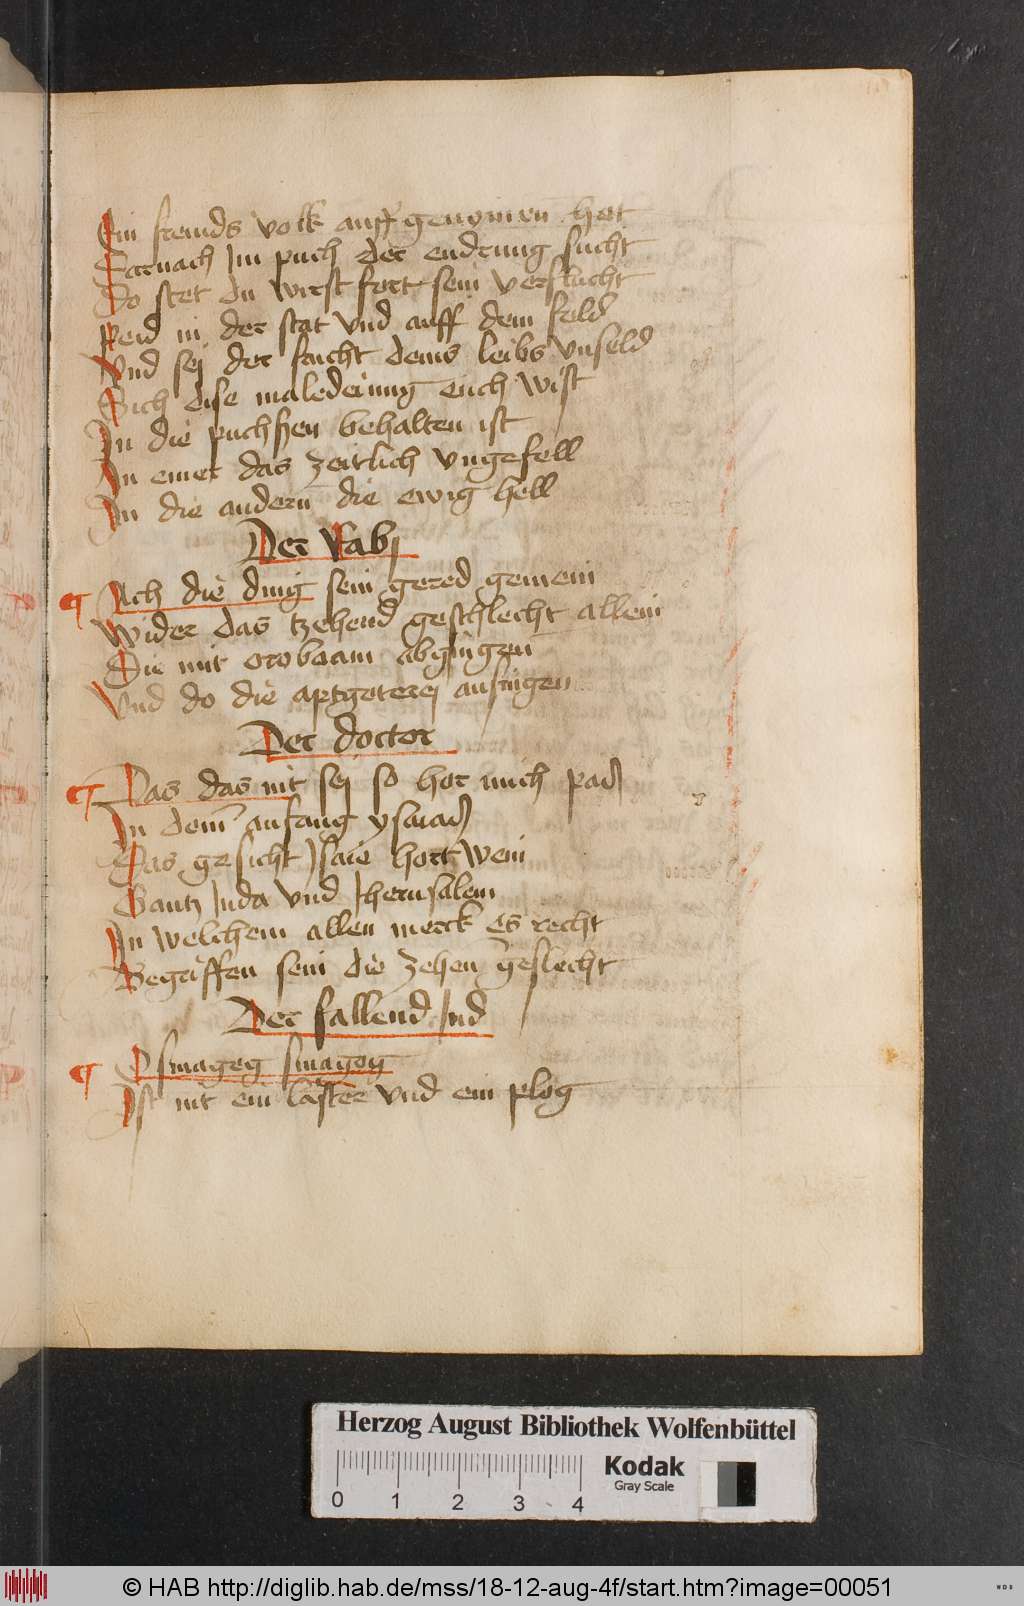 Ein fremds volk auff genomen hat
Darnach Im puch der endrung sucht
Do stet du wirst fort sein verflucht
Peid in der stat vnd auff dem feld
Vnd sej der frucht deins leibs vnseld
Sich dise malederung euch wist
In die puchssen behalten ist
In einer das zeitlich vngefell
In die andern die ewig hell
Der Rabj
Ach die ding sein gered gemein
Wider das tzehend geschlecht allein
Die mit oroboam abgingen
Vnd do die aptgeterej anfingen
Der doctor
Das das nit sej so hor mich paß
In dem anfang ysaias
Das gesicht Isaie hort wem
Gantz Juda vnd Jherusalem
In welchem allen merck es recht
Begriffen sein die zehen geslecht
Der fallend Jud
O smageg smagog
Ist nit ein laster vnd ein plog
Herzog August Bibliothek Wolfenbüttel
Kodak
Gray Scale
0 1 2 3 4
© HAB http://diglib.hab.de/mss/18-12-aug-4f/start.htm?image=00051